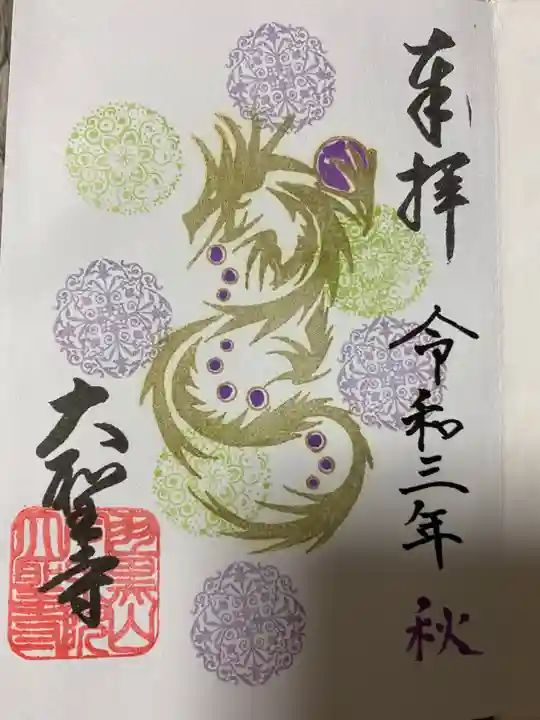 奉拝
令和三年 秋
大聖寺